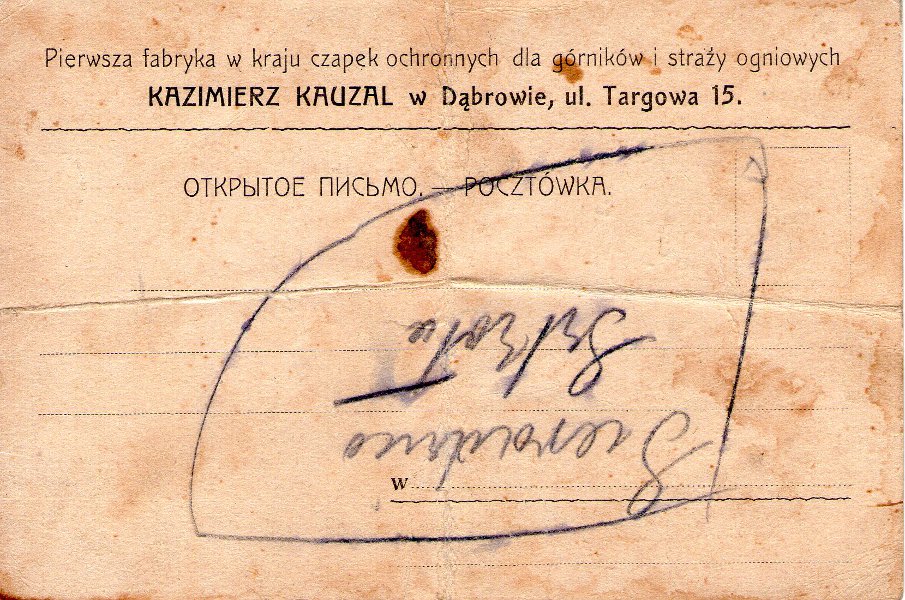 Pierwsza fabryka w kraju czapek ochronnych dla górników i straży ogniowych
KAZIMIERZ KAUZAL w Dąbrowie, ul. Targowa 15.
ОТКРЫТОЕ ПИСЬМО. — POCZTÓWKA.
w